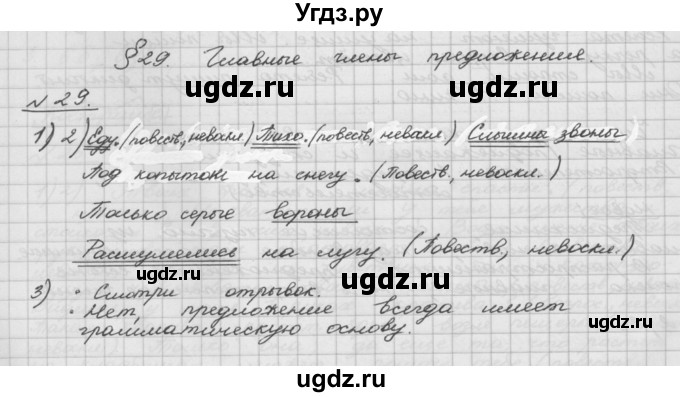 Угдз.ру
§29. Главные члены предложения.
ugdz.ru ugdz.ru
№29.
1) 2) Еду. (повеств, невоскл) Тихо. (повеств, невоскл) Слышны звоны
Под копытом на снегу. (Повеств., невоскл.)
ugdz.ru
Только серые вороны
Расшумелись на лугу. (Повеств., невоскл.)
ugdz.ru ugdz.ru
3) • Смотри отрывок.
• Нет, предложение всегда имеет
грамматическую основу.
ugdz.ru ugdz.ru
ugdz.ru